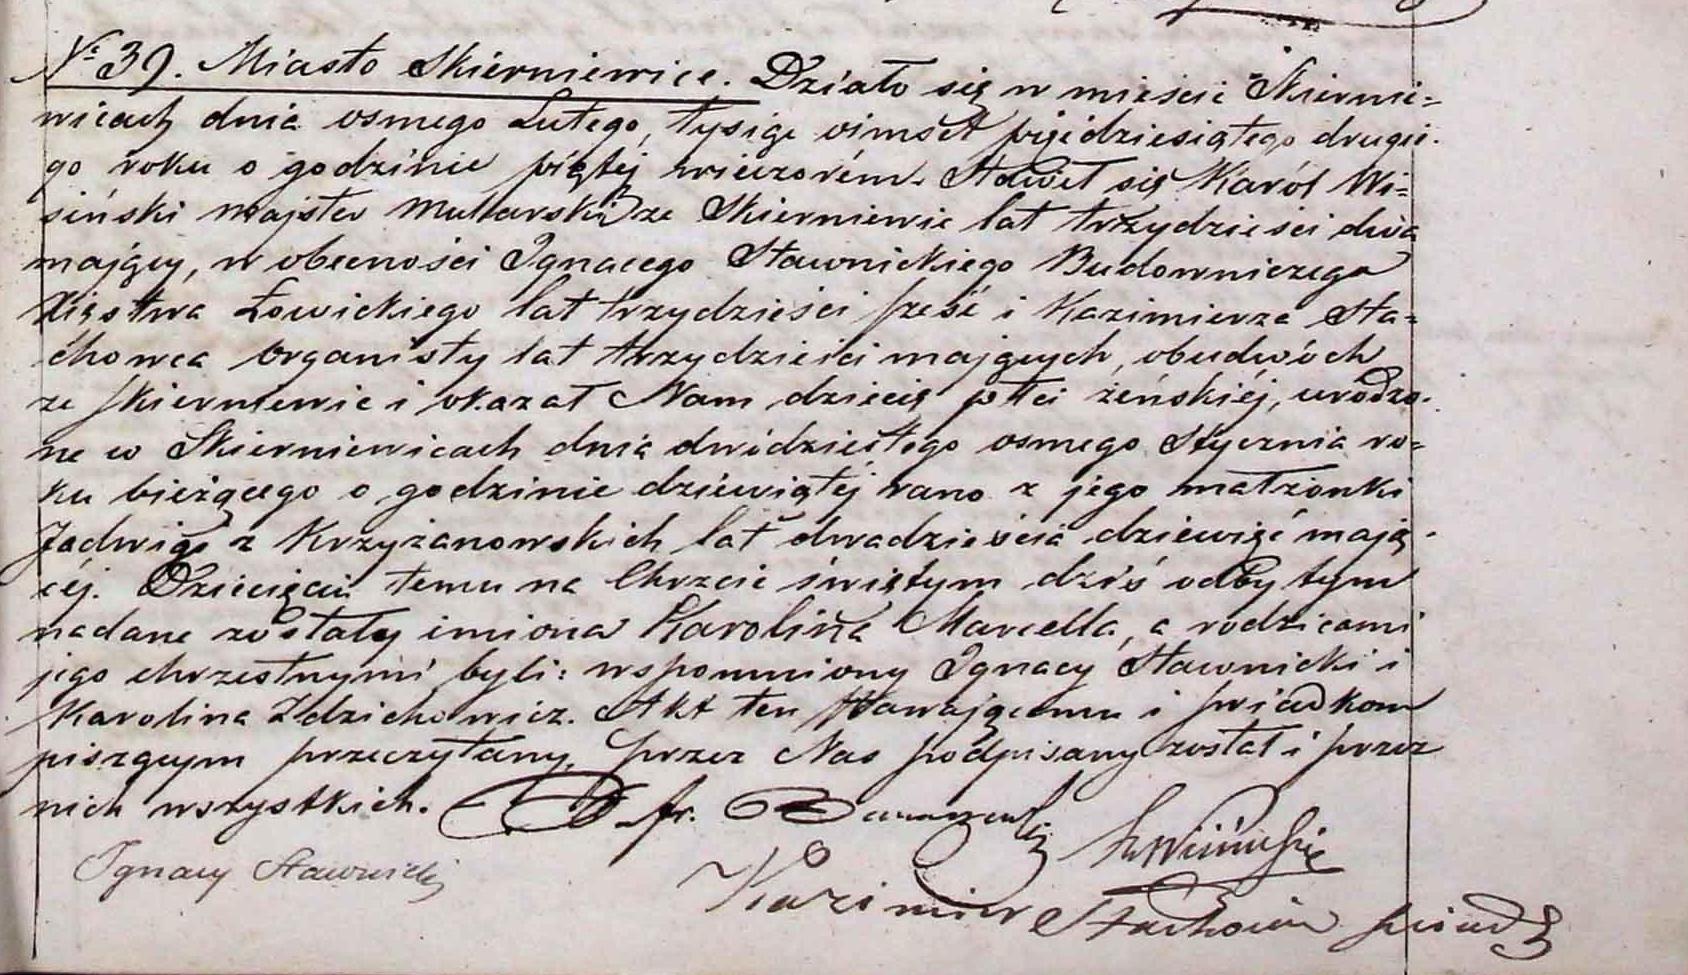 № 39. Miasto Skierniewice. Działo się w mieście Skiernie=
wicach dnia osmego Lutego, tysiąc ośmset pięćdziesiątego drugie-
go roku o godzinie piątej wieczorém. Stawił się Karól Wi=
siński majster mularski ze Skierniewic lat trzydzieści dwa
mający, w obecności Ignacego Sławnickiego Budowniczego
Xięstwa Łowickiego lat trzydzieści sześć i Kazimierza Sta=
chowca Organisty lat trzydzieści mających, obudwóch
ze Skierniewic i okazał Nam dziecię płci żeńskiéj, urodzo-
ne w Skierniewicach dnia dwódziestego osmego Stycznia ro=
ku bieżącego o godzinie dziewiątéj rano z jego małżonki
Jadwigi z Krzyżanowskich lat dwadzieścia dziewięć mają-
céj. Dziecięciu temu na Chrzcie świętym dziś odbytym
nadane zostały imiona Karolina Marcella, a rodzicami
jego chrzestnymi byli: wspomniony Ignacy Sławnicki i
Karolina Zdzichowicz. Akt ten stawającemu i świadkom
piszącym przeczytany, przez Nas podpisany został i przez
nich wszystkich.
Ignacy Sławnicki
Kazimierz Stachowiec świadk